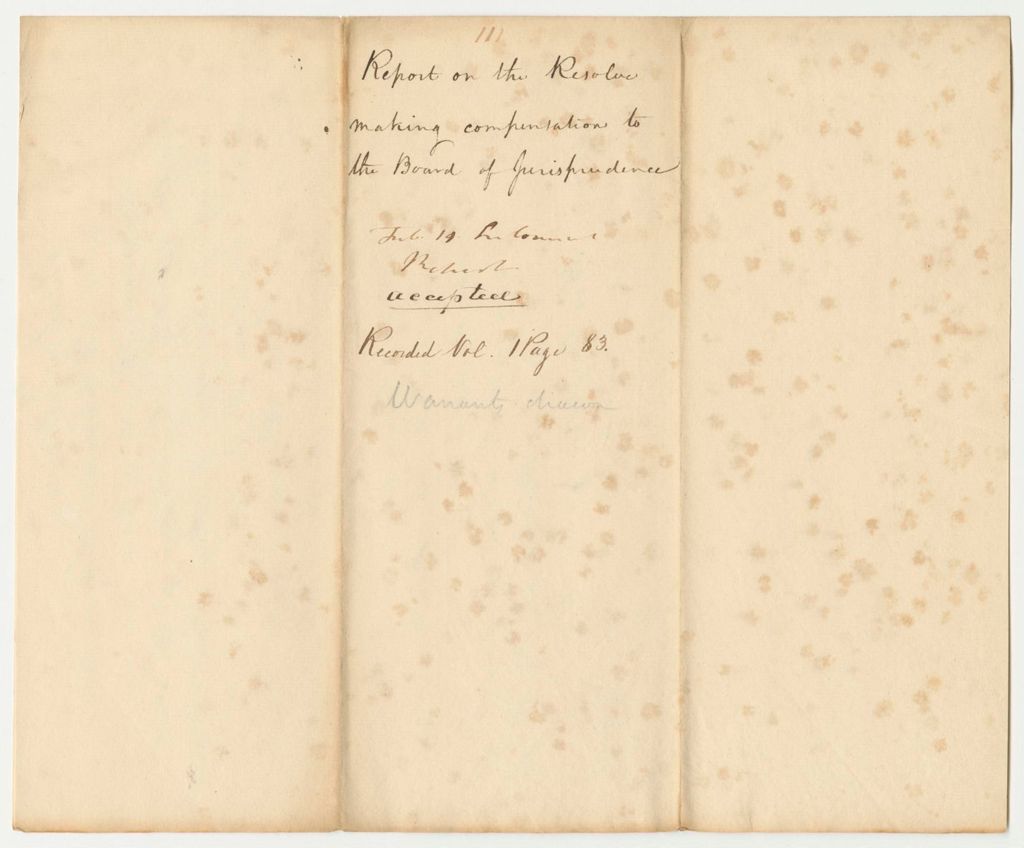 111
Report on the Resolve
making compensation to
the Board of Jurisprudence
Feb. 19. In Council
Report
accepted
Recorded Vol. 1 Page 83.
Warrants drawn